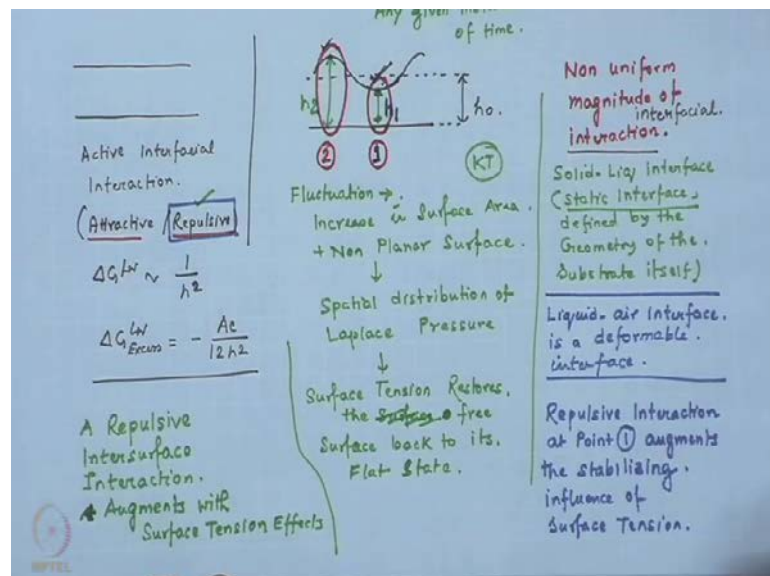 Any given
of time.
Active Interfacial
Interaction.
(Attractive / Repulsive)
ΔG^LW ~ 1/h2
ΔG^LW Excess = - Ae/12h2
A Repulsive
Intersurface
Interaction.
Augments with
Surface Tension Effects
h2
h1
h0.
2
1
KT
Fluctuation →
Increase in Surface Area.
+ Non Planar Surface.
↓
Spatial distribution of
Laplace Pressure
↓
Surface Tension Restores,
the free
Surface back to its,
Flat State.
Non uniform
magnitude of
interfacial.
interaction.
Solid-Liq Interface
(static Interface,
defined by the
Geometry of the,
Substrate itself)
Liquid-air Interface,
is a deformable.
interface.
Repulsive Interaction
at Point 1 augments
the stabilizing.
influence of
Surface Tension.
NPTEL